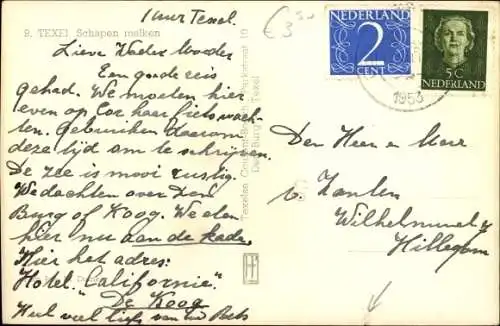 1 uur Texel.
9. TEXEL Schapen melken
Lieve Vader Moeder
Een goede reis
gehad. We moeten hier
even op Cor haar fiets wach-
ten. Gebruiken daarom
deze tijd om te schrijven.
De zee is mooi rustig.
We dachten over Den
Burg of Koog. We eten
hier nu aan de kade.
Hier het adres:
Hotel "Californie".
"De Koog
Heel veel liefs van uw Bets
€ 3,50
NEDERLAND
2
CENT
5 C
NEDERLAND
1953
Den Heer en Mevr
v. Zanten
Wilhelmina
Hillegom
Parkstraat 10
Den Burg - Texel